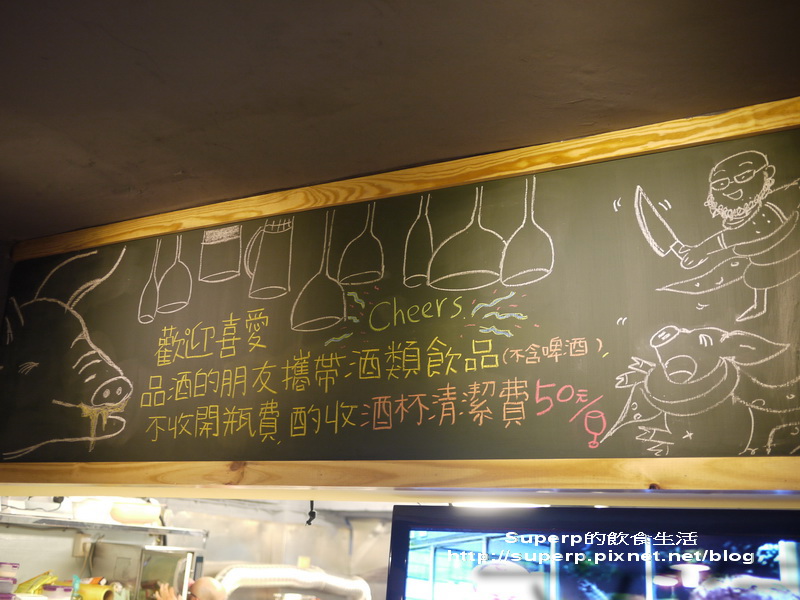 Cheers.
歡迎喜愛
品酒的朋友攜帶酒類飲品(不含啤酒),
不收開瓶費,酌收酒杯清潔費50元/
Superp的飲食生活
http://superp.pixnet.net/blog